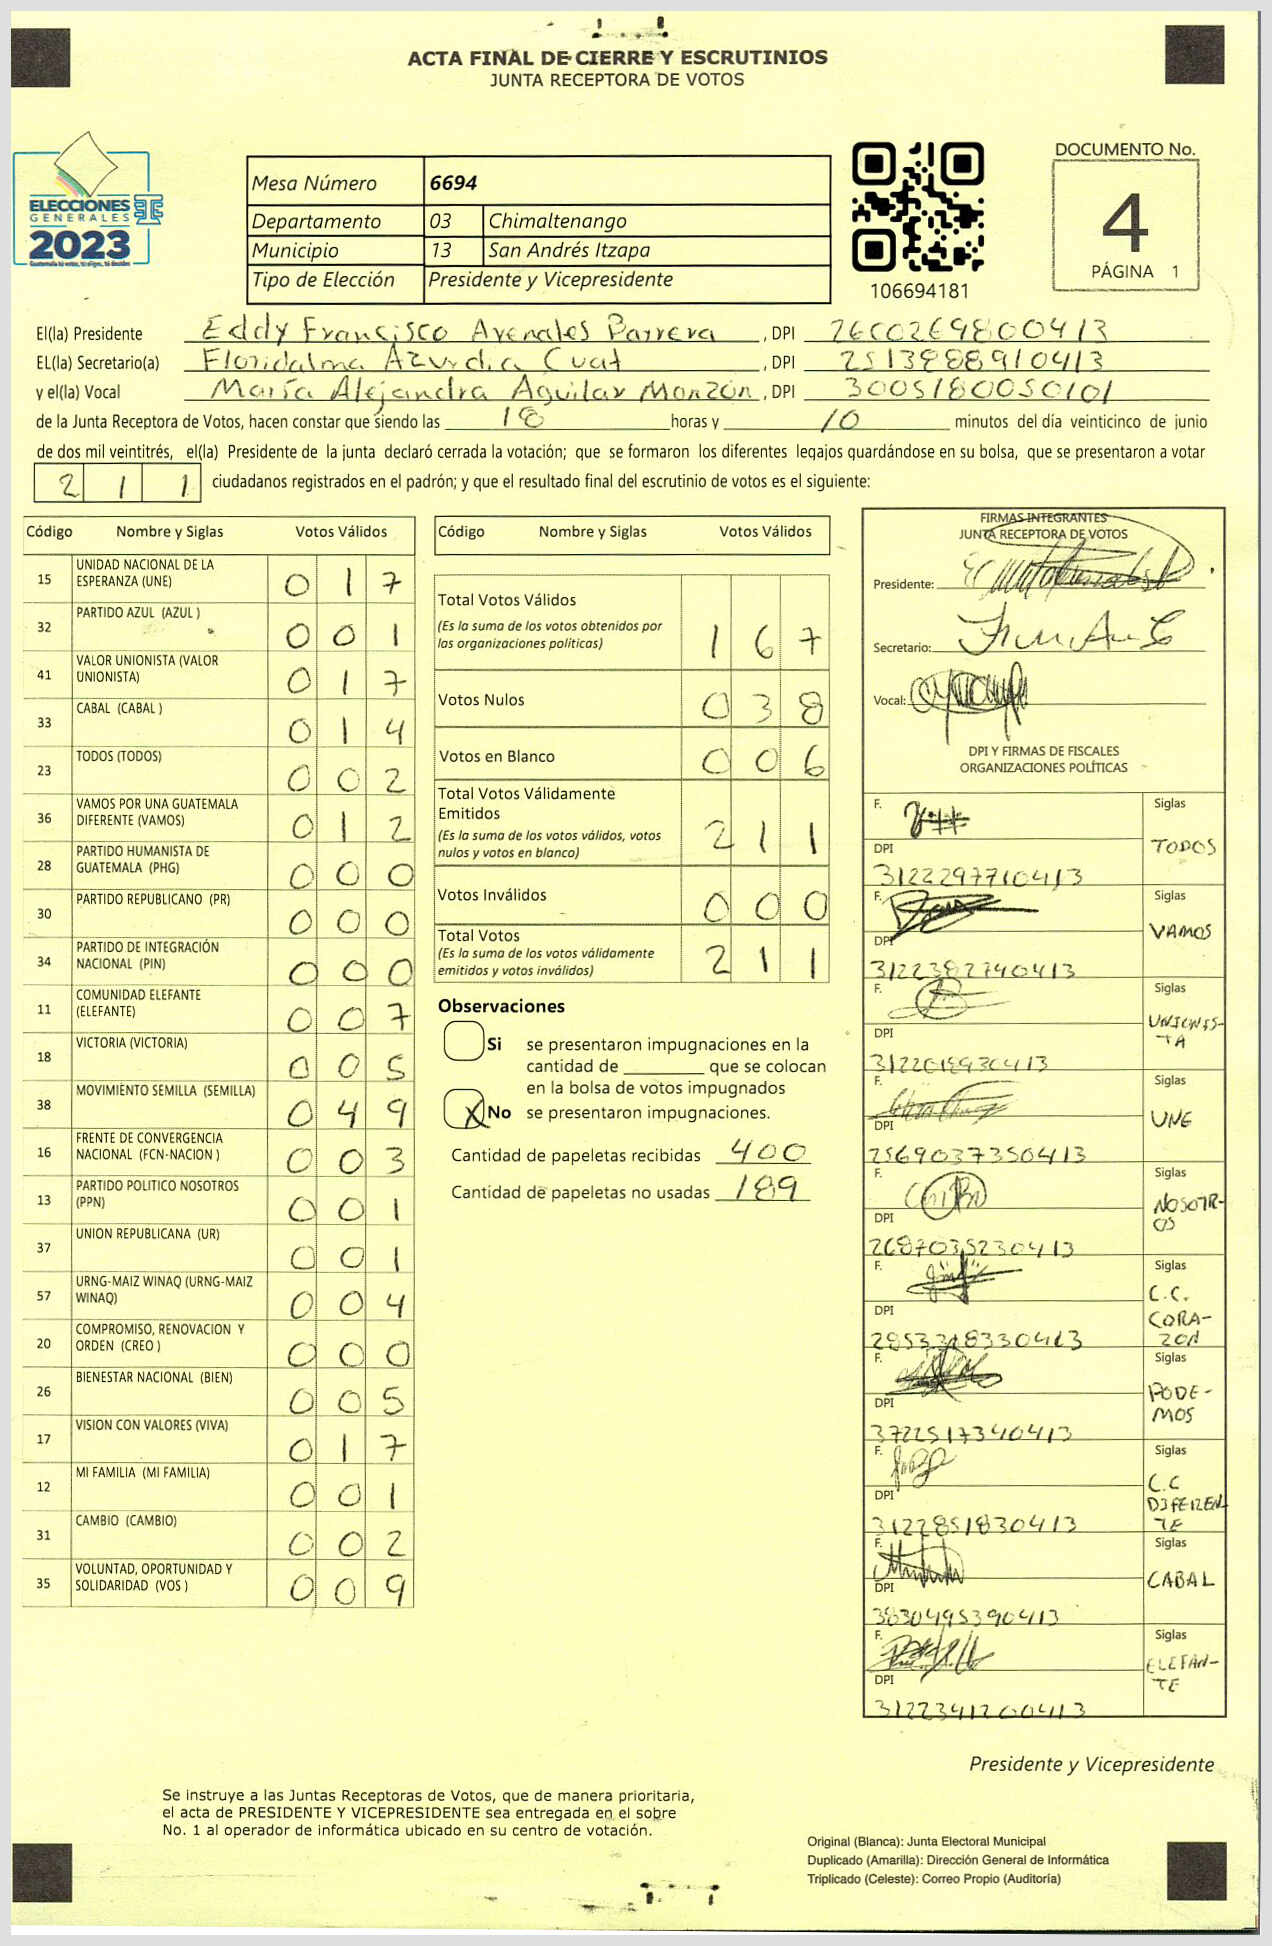 ACTA FINAL DE CIERRE Y ESCRUTINIOS
JUNTA RECEPTORA DE VOTOS
ELECCIONES
GENERALES
2023
Mesa Número 6694
Departamento 03 Chimaltenango
Municipio 13 San Andrés Itzapa
Tipo de Elección Presidente y Vicepresidente
106694181
DOCUMENTO No.
4
PÁGINA 1
El(la) Presidente Eddy Francisco Arenales Parrera, DPI 2600269800413
EL(la) Secretario(a) Floridalma Azurdia Cuat, DPI 2513888910413
y el(la) Vocal María Alejandra Aguilar Monzón, DPI 3005180050101
de la Junta Receptora de Votos, hacen constar que siendo las 18 horas y 10 minutos del día veinticinco de junio
de dos mil veintitrés, el(la) Presidente de la junta declaró cerrada la votación; que se formaron los diferentes legajos guardándose en su bolsa, que se presentaron a votar
211 ciudadanos registrados en el padrón; y que el resultado final del escrutinio de votos es el siguiente:
Código Nombre y Siglas Votos Válidos
15 UNIDAD NACIONAL DE LA ESPERANZA (UNE) 017
32 PARTIDO AZUL (AZUL ) 001
41 VALOR UNIONISTA (VALOR UNIONISTA) 017
33 CABAL (CABAL ) 014
23 TODOS (TODOS) 002
36 VAMOS POR UNA GUATEMALA DIFERENTE (VAMOS) 012
28 PARTIDO HUMANISTA DE GUATEMALA (PHG) 000
30 PARTIDO REPUBLICANO (PR) 000
34 PARTIDO DE INTEGRACIÓN NACIONAL (PIN) 000
11 COMUNIDAD ELEFANTE (ELEFANTE) 007
18 VICTORIA (VICTORIA) 005
38 MOVIMIENTO SEMILLA (SEMILLA) 049
16 FRENTE DE CONVERGENCIA NACIONAL (FCN-NACION ) 003
13 PARTIDO POLITICO NOSOTROS (PPN) 001
37 UNION REPUBLICANA (UR) 001
57 URNG-MAIZ WINAQ (URNG-MAIZ WINAQ) 004
20 COMPROMISO, RENOVACION Y ORDEN (CREO ) 000
26 BIENESTAR NACIONAL (BIEN) 005
17 VISION CON VALORES (VIVA) 017
12 MI FAMILIA (MI FAMILIA) 001
31 CAMBIO (CAMBIO) 002
35 VOLUNTAD, OPORTUNIDAD Y SOLIDARIDAD (VOS ) 009
Código Nombre y Siglas Votos Válidos
Total Votos Válidos
(Es la suma de los votos obtenidos por
las organizaciones políticas) 167
Votos Nulos 038
Votos en Blanco 006
Total Votos Válidamente
Emitidos
(Es la suma de los votos válidos, votos
nulos y votos en blanco) 211
Votos Inválidos 000
Total Votos
(Es la suma de los votos válidamente
emitidos y votos inválidos) 211
Observaciones
Si se presentaron impugnaciones en la
cantidad de ________ que se colocan
en la bolsa de votos impugnados
X No se presentaron impugnaciones.
Cantidad de papeletas recibidas 400
Cantidad de papeletas no usadas 189
FIRMAS INTEGRANTES
JUNTA RECEPTORA DE VOTOS
Presidente:
Secretario:
Vocal:
DPI Y FIRMAS DE FISCALES
ORGANIZACIONES POLÍTICAS
F. Siglas
DPI TODOS
3122297710413
F. Siglas
DPI VAMOS
3122382740413
F. Siglas
DPI UNIONIS-
TA
3122018930413
F. Siglas
DPI UNE
2569037350413
F. Siglas
DPI NOSOTR-
OS
2687035230413
F. Siglas
DPI C.C.
CORA-
ZON
2853318330413
F. Siglas
DPI PODE-
MOS
3722517340413
F. Siglas
DPI C.C
DIFEREN
TE
3122851830413
F. Siglas
DPI CABAL
3830495390413
F. Siglas
DPI ELEFAN-
TE
3122341200413
Presidente y Vicepresidente
Se instruye a las Juntas Receptoras de Votos, que de manera prioritaria,
el acta de PRESIDENTE Y VICEPRESIDENTE sea entregada en el sobre
No. 1 al operador de informática ubicado en su centro de votación.
Original (Blanca): Junta Electoral Municipal
Duplicado (Amarilla): Dirección General de Informática
Triplicado (Celeste): Correo Propio (Auditoría)